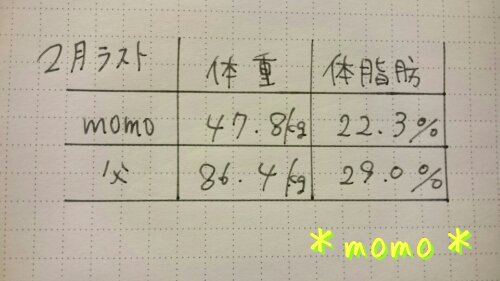 2月ラスト 体重 体脂肪
momo 47.8kg 22.3%
父 86.4kg 29.0%
* momo *